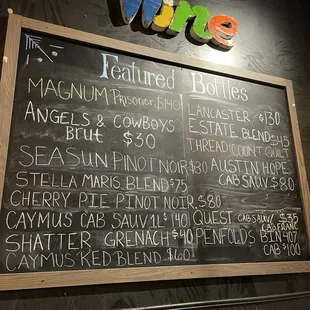 Wine
Featured Bottles
MAGNUM Prisoner $140
ANGELS & COWBOYS
BRUT $50
SEASUN PINOT NOIR $30
STELLA MARIS BLEND $75
CHERRY PIE PINOT NOIR $80
CAYMUS CAB SAUV 1L $140
SHATTER GRENACH $40
CAYMUS RED BLEND $60
LANCASTER $130
ESTATE BLEND $45
THREAD COUNT QUILT
AUSTIN HOPE
CAB SAUV $80
QUEST CAB SAUV/ $35
CAB FRANC
PENFOLDS BIN 407
CAB $100